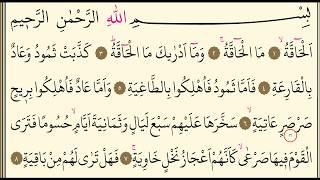 بِسْمِ اللهِ الرَّحْمٰنِ الرَّحِيمِ
اَلْحَاقَّةُ ۙ ١ مَا الْحَاقَّةُ ۚ ٢ وَمَٓا اَدْرٰيكَ مَا الْحَاقَّةُ ۜ ٣ كَذَّبَتْ ثَمُودُ وَعَادٌ
بِالْقَارِعَةِ ٤ فَاَمَّا ثَمُودُ فَاُهْلِكُوا بِالطَّاغِيَةِ ٥ وَاَمَّا عَادٌ فَاُهْلِكُوا بِرِيحٍ
صَرْصَرٍ عَاتِيَةٍ ۙ ٦ سَخَّرَهَا عَلَيْهِمْ سَبْعَ لَيَالٍ وَثَمَانِيَةَ اَيَّامٍ حُسُومًا فَتَرَى
الْقَوْمَ فِيهَا صَرْعٰى كَاَنَّهُمْ اَعْجَازُ نَخْلٍ خَاوِيَةٍ ۚ ٧ فَهَلْ تَرٰى لَهُمْ مِنْ بَاقِيَةٍ ٨